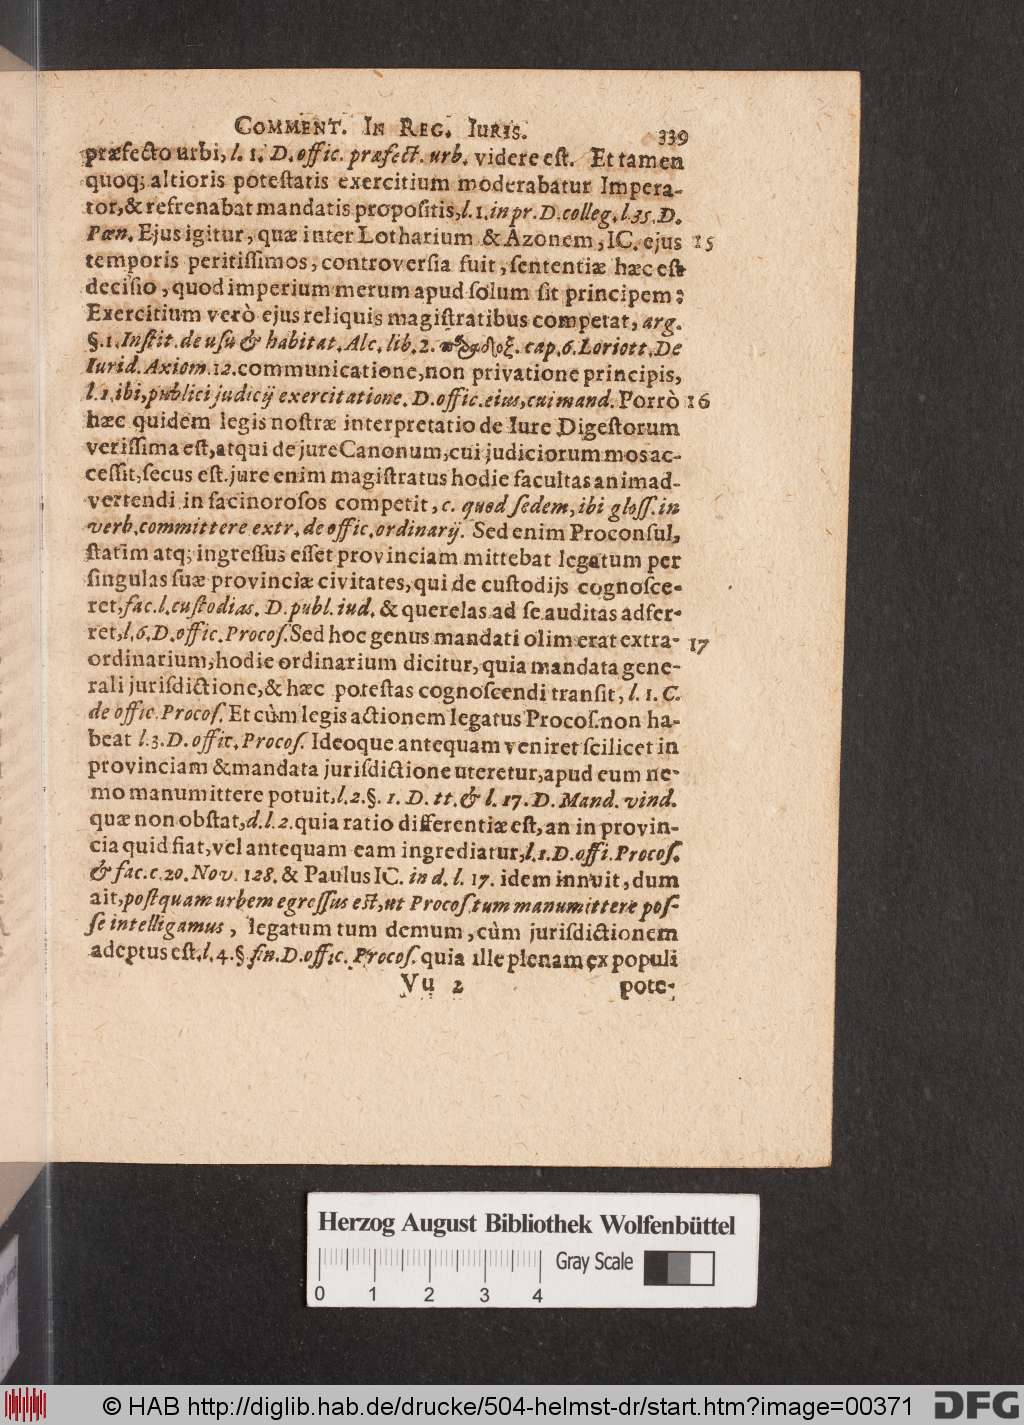 COMMENT. IN REG. IURIS. 339
præfecto urbi, l. 1. D. offic. præfect. urb. videre est. Et tamen
quoq; altioris potestatis exercitium moderabatur Impera-
tor, & refrenabat mandatis propositis, l. 1. in pr. D. colleg. l. 35. D.
Pœn. Ejus igitur, quæ inter Lotharium & Azonem, IC. ejus 15
temporis peritissimos, controversia fuit, sententiæ hæc est
decisio, quod imperium merum apud solum sit principem;
Exercitium verò ejus reliquis magistratibus competat, arg.
§. 1. Instit. de usu & habitat. Alc. lib. 2. cap. 6. Loriott. De
Iurid. Axiom. 12. communicatione, non privatione principis,
l. 1. ibi, publici judicij exercitatione. D. offic. eius, cui mand. Porrò 16
hæc quidem legis nostræ interpretatio de Iure Digestorum
verissima est, atqui de jure Canonum, cui judiciorum mos ac-
cessit, secus est. jure enim magistratus hodie facultas animad-
vertendi in facinorosos competit, c. quod sedem, ibi gloss. in
verb. committere extr. de offic. ordinarij. Sed enim Proconsul,
statim atq; ingressus esset provinciam mittebat legatum per
singulas suæ provinciæ civitates, qui de custodijs cognosce-
ret, fac. l. custodias. D. publ. iud. & querelas ad se auditas adfer-
ret, l. 6. D. offic. Procos. Sed hoc genus mandati olim erat extra- 17
ordinarium, hodie ordinarium dicitur, quia mandata gene-
rali jurisdictione, & hæc potestas cognoscendi transit, l. 1. C.
de offic. Procos. Et cùm legis actionem legatus Procos. non ha-
beat l. 3. D. offic. Procos. Ideoque antequam veniret scilicet in
provinciam & mandata jurisdictione uteretur, apud eum ne-
mo manumittere potuit, l. 2. §. 1. D. tt. & l. 17. D. Mand. vind.
quæ non obstat, d. l. 2. quia ratio differentiæ est, an in provin-
cia quid fiat, vel antequam eam ingrediatur, l. 1. D. offi. Procos.
& fac. c. 20. Nov. 128. & Paulus IC. in d. l. 17. idem innuit, dum
ait, postquam urbem egressus est, ut Procos. tum manumittere pos-
se intelligamus, legatum tum demum, cùm jurisdictionem
adeptus est, l. 4. § fin. D. offic. Procos. quia ille plenam ex populi
Vu 2 pote-
Herzog August Bibliothek Wolfenbüttel
Gray Scale
0 1 2 3 4
© HAB http://diglib.hab.de/drucke/504-helmst-dr/start.htm?image=00371 DFG